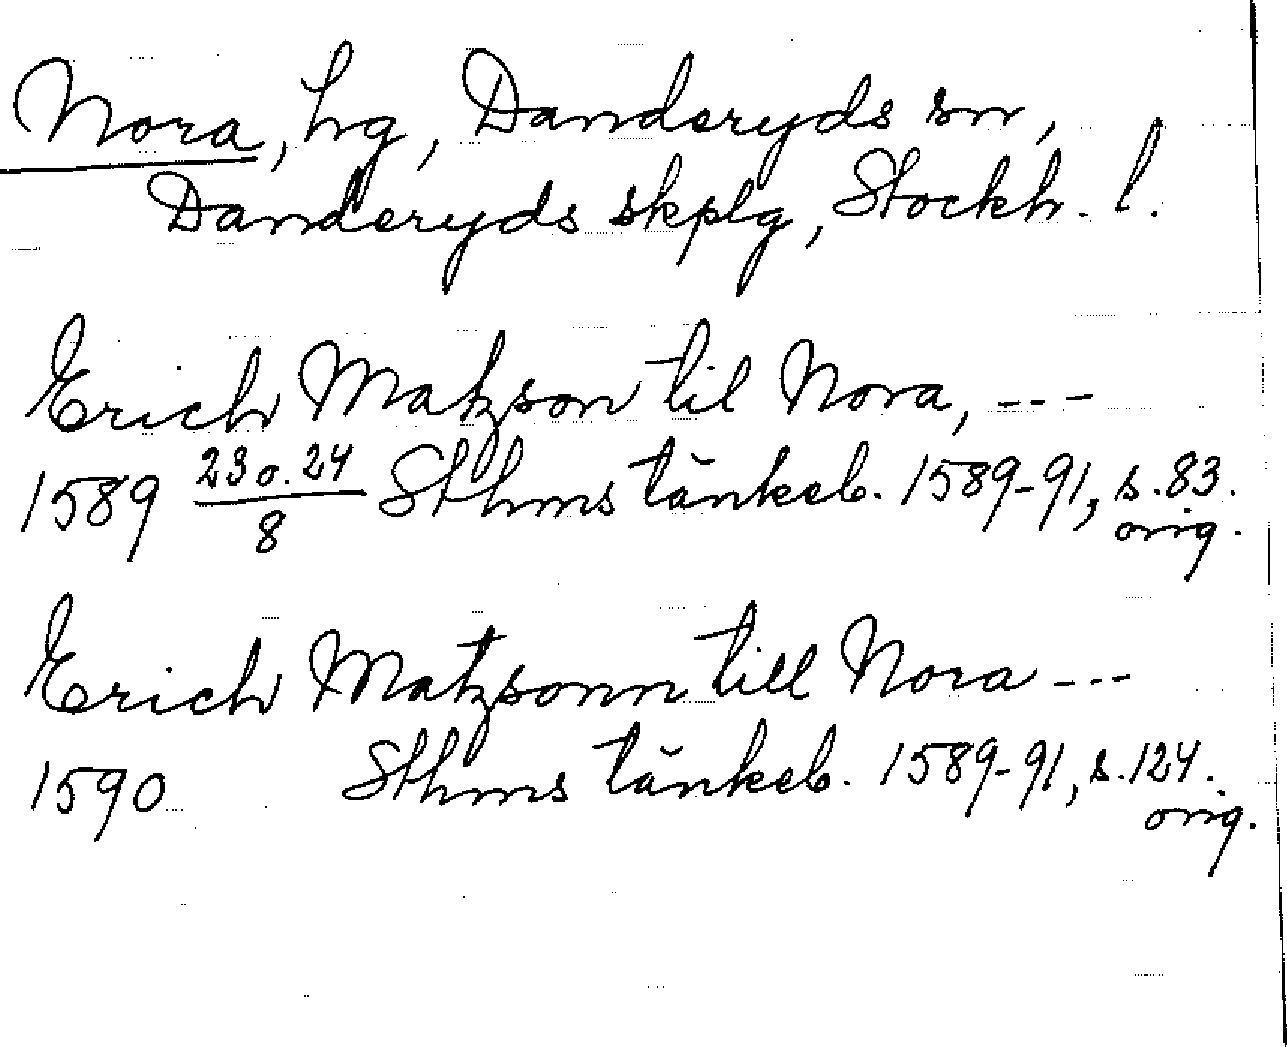 Nora, hg, Danderyds sn,
Danderyds skplg, Stockh. l.
Erich Matzson til Nora, ---
1589 23 o. 24/8 Sthms tänkeb. 1589-91, s. 83.
orig.
Erich Matzsonn till Nora ---
1590 Sthms tänkeb. 1589-91, s. 124.
orig.